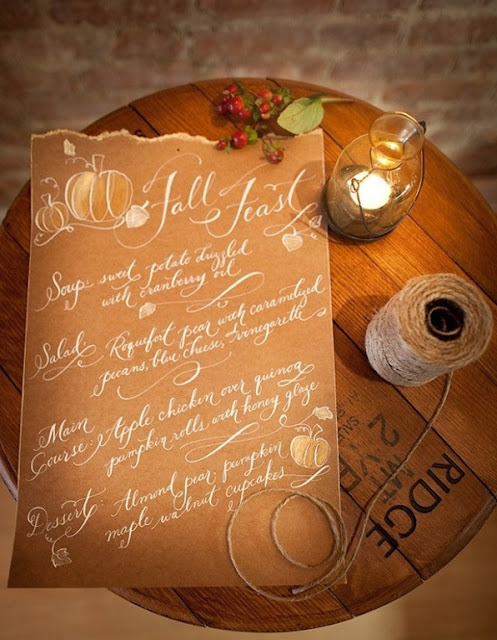 Fall Feast
Soup: sweet potato drizzled
with cranberry oil
Salad Roquefort pear with caramelized
pecans, blue cheese, + vinegarette
Main
Course: Apple chicken over quinoa
pumpkin rolls with honey glaze
Dessert: Almond pear pumpkin
maple walnut cupcakes
RIDGE
MT
2